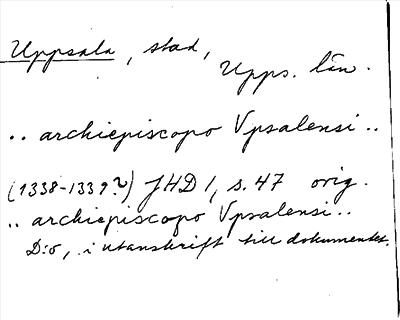 Uppsala, stad,
Upps. län.
.. archiepiscopo Vpsalensi ..
(1338-1339?) JHD 1, s. 47 orig.
.. archiepiscopo Vpsalensi ..
D:o, i utanskrift till dokumentet.